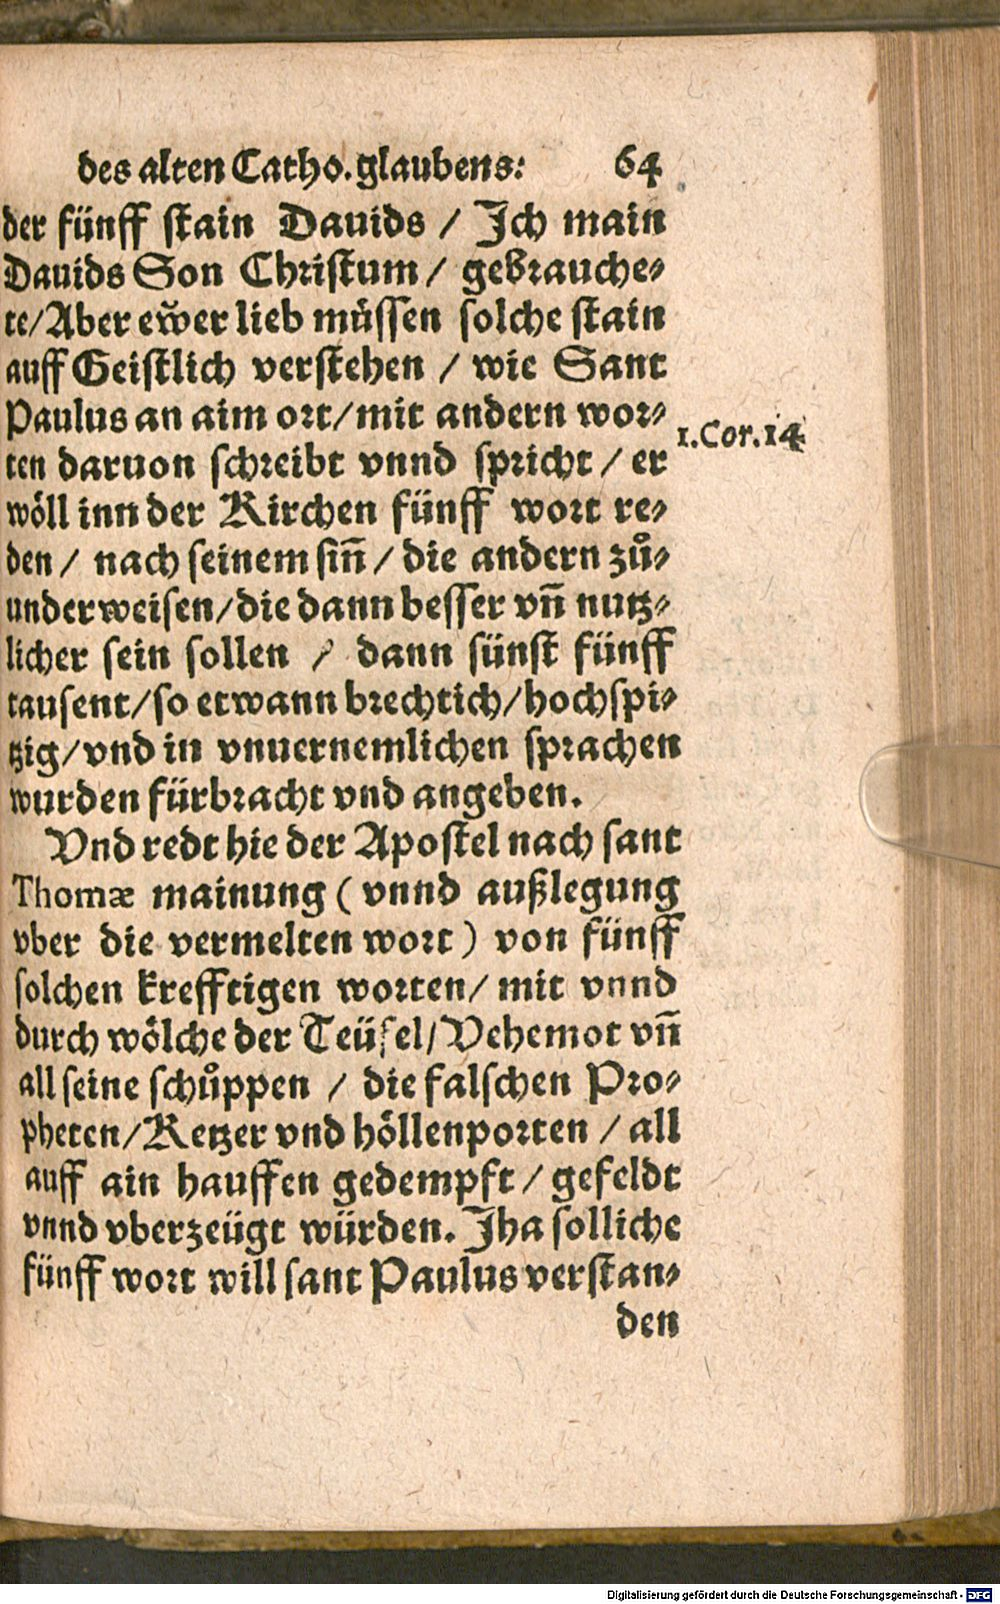 des alten Catho. glaubens: 64
der fünff stain Dauids / Ich main
Dauids Son Christum / gebrauche⸗
te / Aber ew̃er lieb müssen solche stain
auff Geistlich verstehen / wie Sant
Paulus an aim ort / mit andern wor⸗
1. Cor. 14
ten daruon schreibt vnnd spricht / er
wöll inn der Kirchen fünff wort re⸗
den / nach seinem siñ / die andern zů⸗
underweisen / die dann besser vñ nutz⸗
licher sein sollen / dann sünst fünff
tausent / so etwann brechtich / hochspi⸗
tzig / vnd in vnuernemlichen sprachen
wurden fürbracht vnd angeben.
Vnd redt hie der Apostel nach sant
Thomæ mainung ( vnnd außlegung
vber die vermelten wort ) von fünff
solchen krefftigen worten / mit vnnd
durch wölche der Teüfel / Vehemot vñ
all seine schůppen / die falschen Pro⸗
pheten / Ketzer vnd höllenporten / all
auff ain hauffen gedempft / gefeldt
vnnd vberzeügt würden. Jha solliche
fünff wort will sant Paulus verstan⸗
den
Digitalisierung gefördert durch die Deutsche Forschungsgemeinschaft - DFG